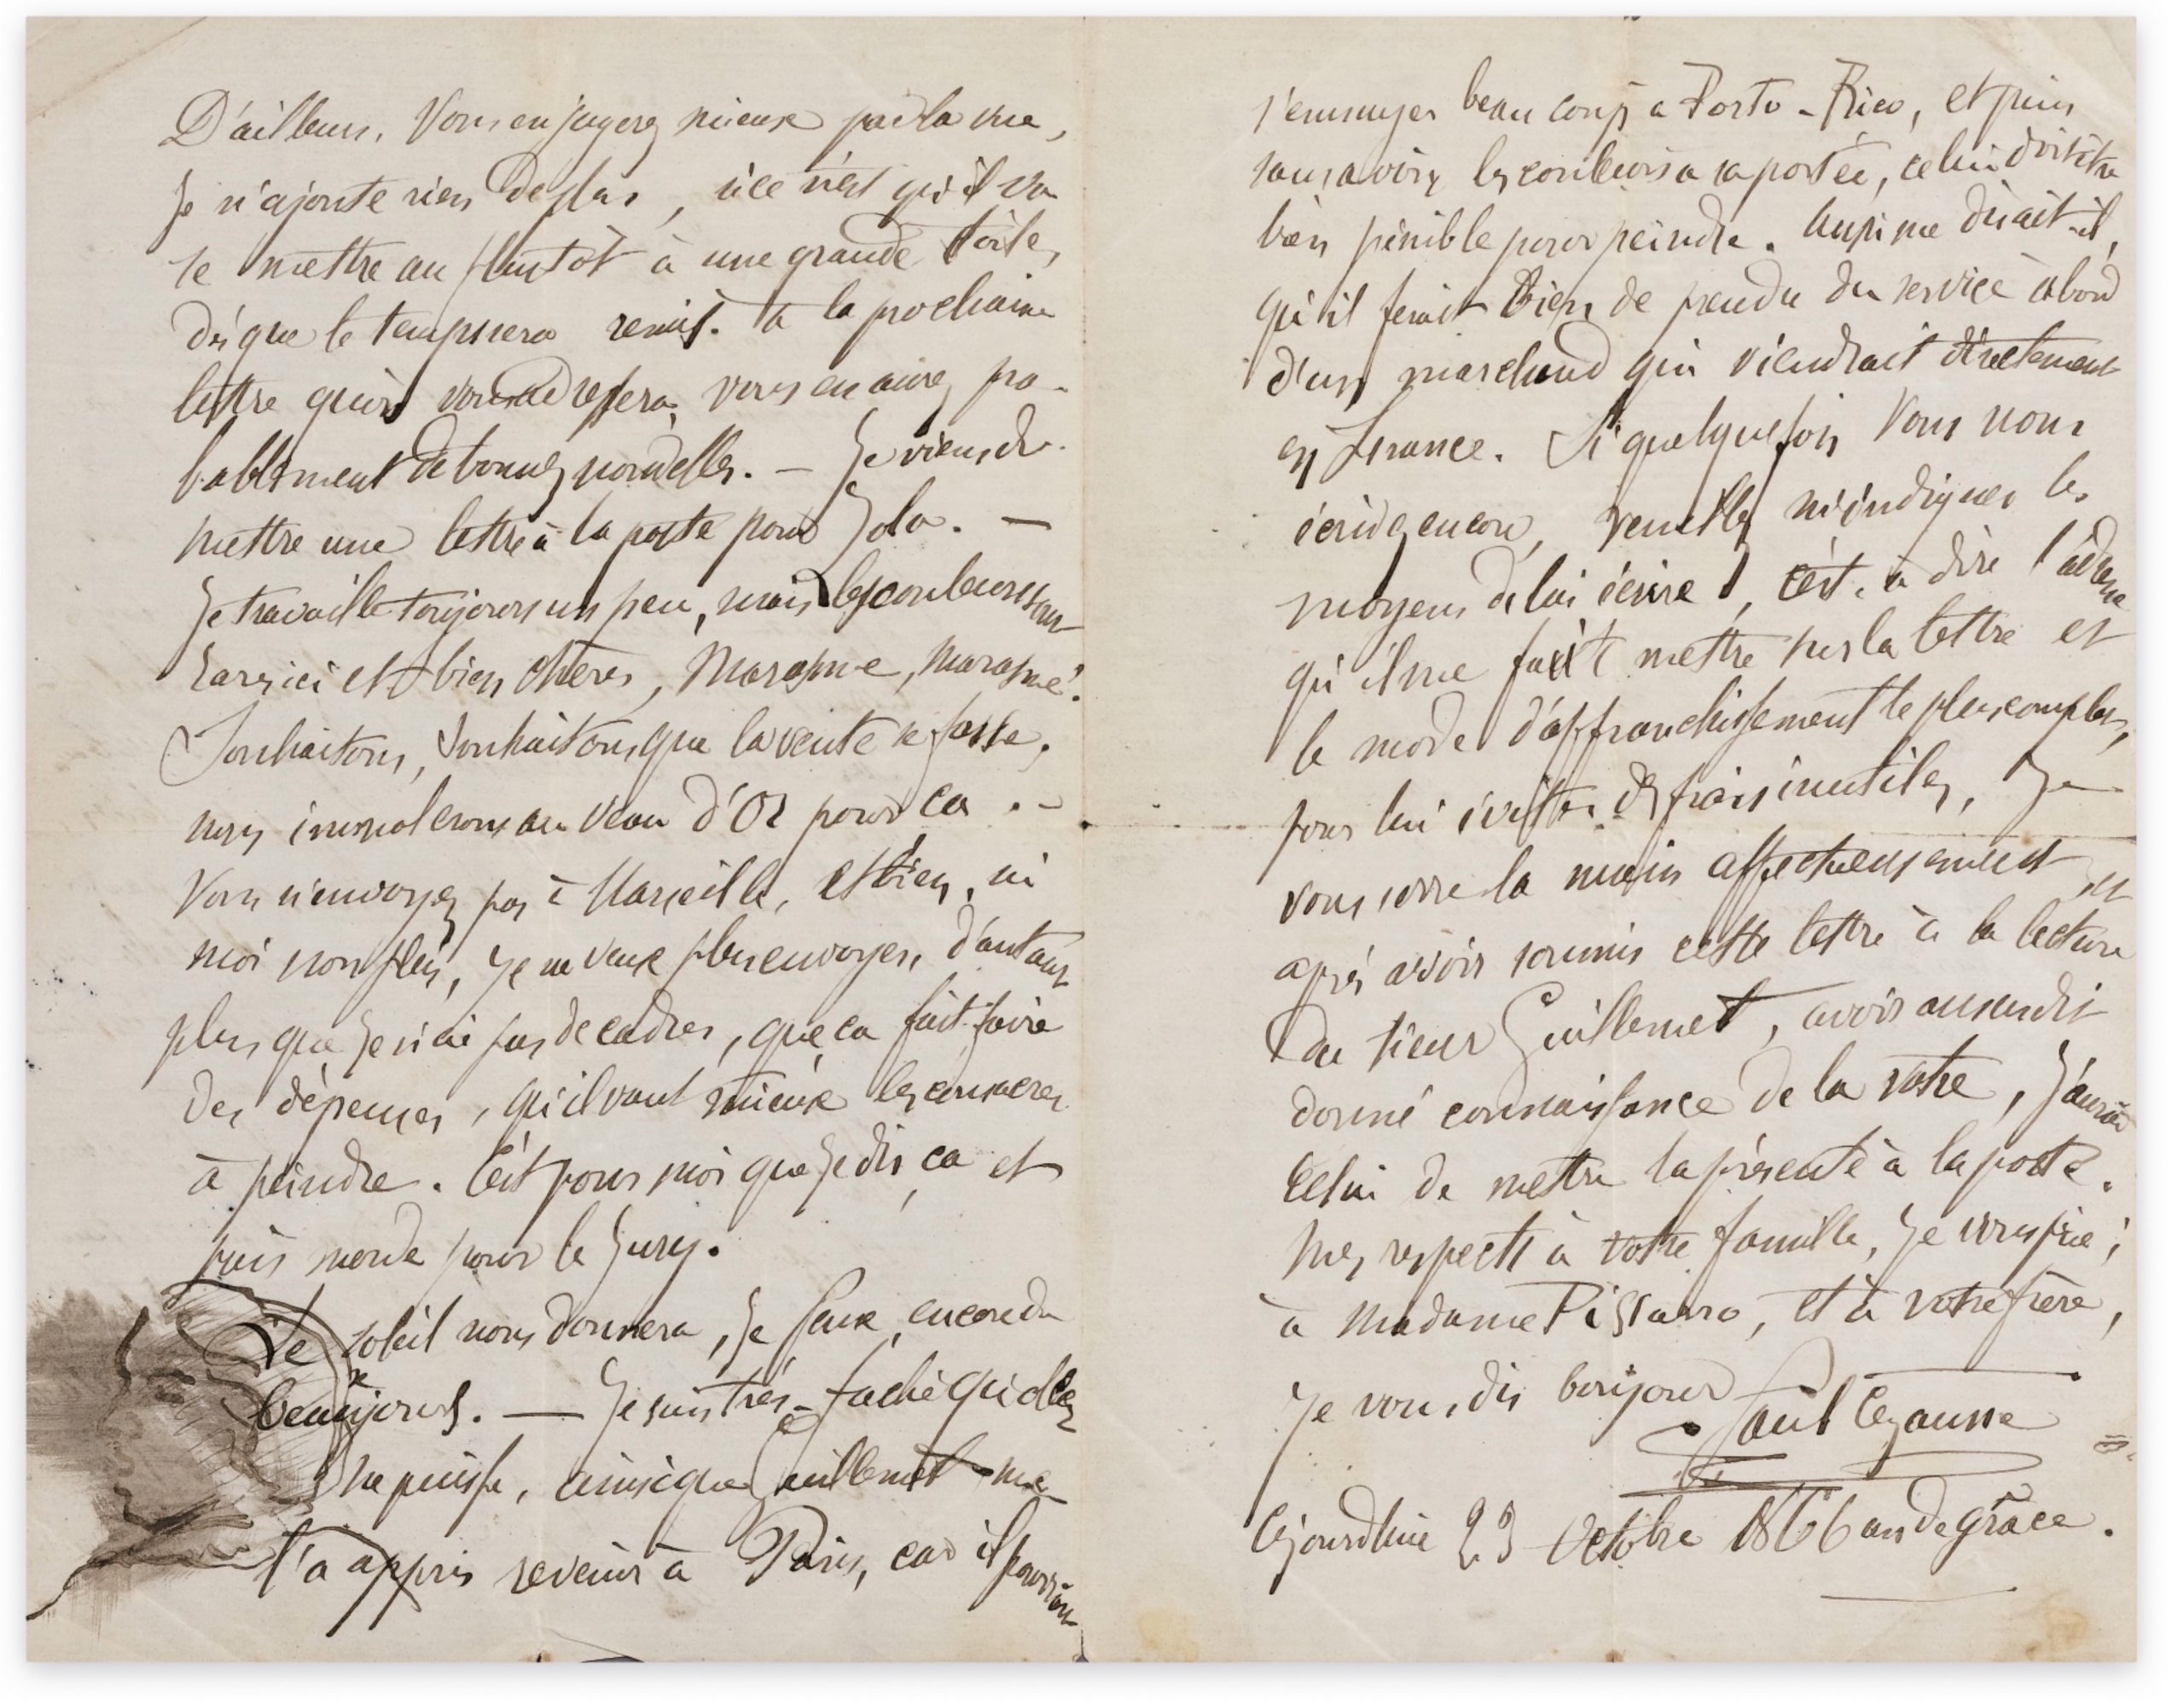 D'ailleurs, Vous en jugerez mieux par la vue,
Je n'ajoute rien de plus, si ce n'est qu'il va
se mettre au plutôt à une grande toile,
dès que le temps sera remis. A la prochaine
lettre qu'on vous adressera, vous en aurez pro-
bablement de bonnes nouvelles. — Je viens de
mettre une lettre à la poste pour Zola. —
Je travaille toujours un peu, mais les couleurs sont
rares ici et bien chères, Marasme, marasme!
Souhaitons, souhaitons que la vente se fasse,
nous immolerons au Veau d'Or pour ça. —
Vous n'envoyez pas à Marseille, et bien, ni
moi non plus, Je ne veux plus envoyer, d'autant
plus que je n'ai pas de cadres, que ça fait faire
des dépenses, qu'il vaut mieux les consacrer
à peindre. C'est pour moi que je dis ça, et
puis merde pour le Jury.
Le soleil nous donnera, je peux, encore de
beaux jours. — Je suis très-faché qu'Oller
ne puisse, ainsi que Guillemet me
l'a appris revenir à Paris, car il pourrait
s'ennuyer beaucoup à Porto-Rico, et puis
sans avoir les couleurs à sa portée, ce lui doit être
bien pénible pour peindre. Aussi me disait-il,
qu'il ferait bien de prendre du service à bord
d'un marchand qui viendrait directement
en France. Si quelquefois Vous nous
écrivez encore, veuillez m'indiquer les
moyens de lui écrire, c'est-à-dire l'adresse
qu'il me faut mettre sur la lettre et
le mode d'affranchissement le plus complet,
pour lui éviter des frais inutiles, Je
vous serre la main affectueusement, et
après avoir soumis cette lettre à la lecture
du sieur Guillemet, avoir au susdit
donné connaissance de la votre, j'aurai
celui de mettre la présente à la poste.
Mes respects à votre famille, je vous prie;
à Madame Pissarro, et à votre frère,
je vous dis bonjour
Paul Cezanne
Cejourdhui 23 Octobre 1866 an de grâce.